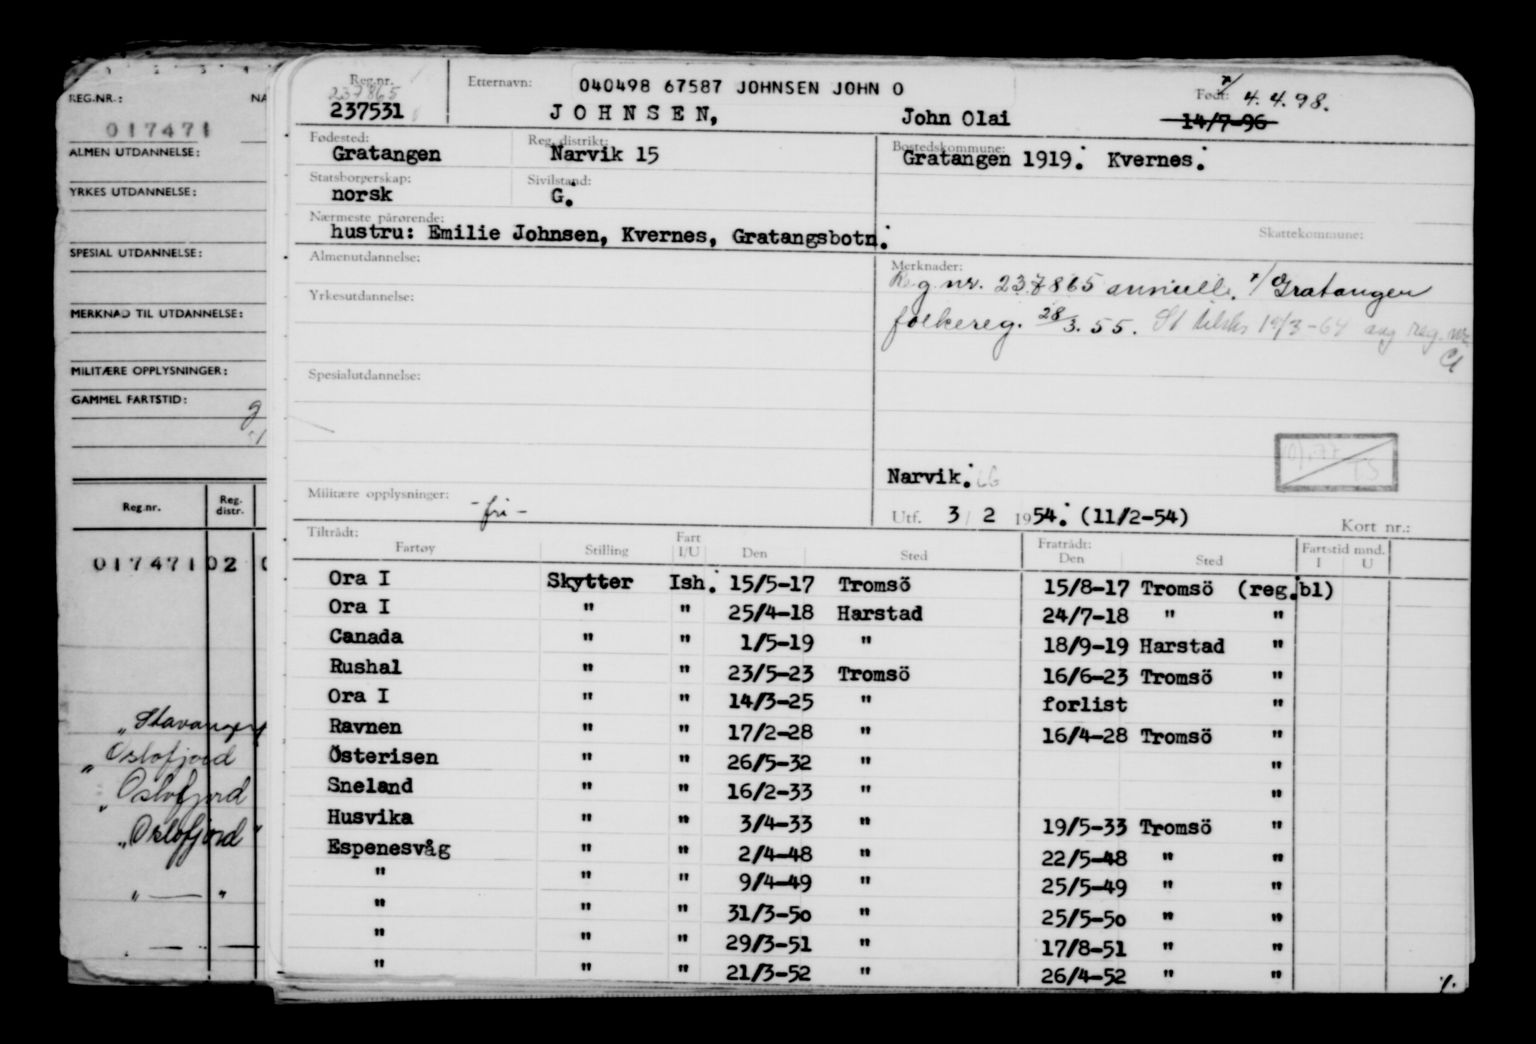 REG.NR.:
NA
017471
ALMEN UTDANNELSE:
YRKES UTDANNELSE:
SPESIAL UTDANNELSE:
MERKNAD TIL UTDANNELSE:
MILITÆRE OPPLYSNINGER:
GAMMEL FARTSTID:
Reg.nr. Reg. distr.
017471 02
„ Stavanger
„ Oslofjord
„ Oslofjord
„ Oslofjord "
" — "
Reg.nr.
237865
237531
Etternavn: 040498 67587 JOHNSEN JOHN O
JOHNSEN, John Olai
Født: x/ 4.4.98.
14/7-96
Fødested: Gratangen
Reg. distrikt: Narvik 15
Bostedskommune: Gratangen 1919. Kvernes.
Statsborgerskap: norsk
Sivilstand: G.
Nærmeste pårørende: hustru: Emilie Johnsen, Kvernes, Gratangsbotn.
Skattekommune:
Almenutdannelse:
Merknader: Reg. nr. 237865 annulle. x/ Gratangen
folkereg. 28/3.55. 3-64 ang reg. nr.
Yrkesutdannelse:
Spesialutdannelse:
Narvik.
Militære opplysninger: -fri-
Utf. 3/2 1954. (11/2-54)
Kort nr.:
Tiltrådt: Fratrådt: Fartstid mnd.
Fartøy Stilling Fart I/U Den Sted Den Sted I U
Ora I Skytter Ish. 15/5-17 Tromsö 15/8-17 Tromsö (reg.bl)
Ora I " " 25/4-18 Harstad 24/7-18 " "
Canada " " 1/5-19 " 18/9-19 Harstad "
Rushal " " 23/5-23 Tromsö 16/6-23 Tromsö "
Ora I " " 14/3-25 " forlist "
Ravnen " " 17/2-28 " 16/4-28 Tromsö "
Österisen " " 26/5-32 " "
Sneland " " 16/2-33 " "
Husvika " " 3/4-33 " 19/5-33 Tromsö "
Espenesvåg " " 2/4-48 " 22/5-48 " "
" " " 9/4-49 " 25/5-49 " "
" " " 31/3-50 " 25/5-50 " "
" " " 29/3-51 " 17/8-51 " "
" " " 21/3-52 " 26/4-52 " "